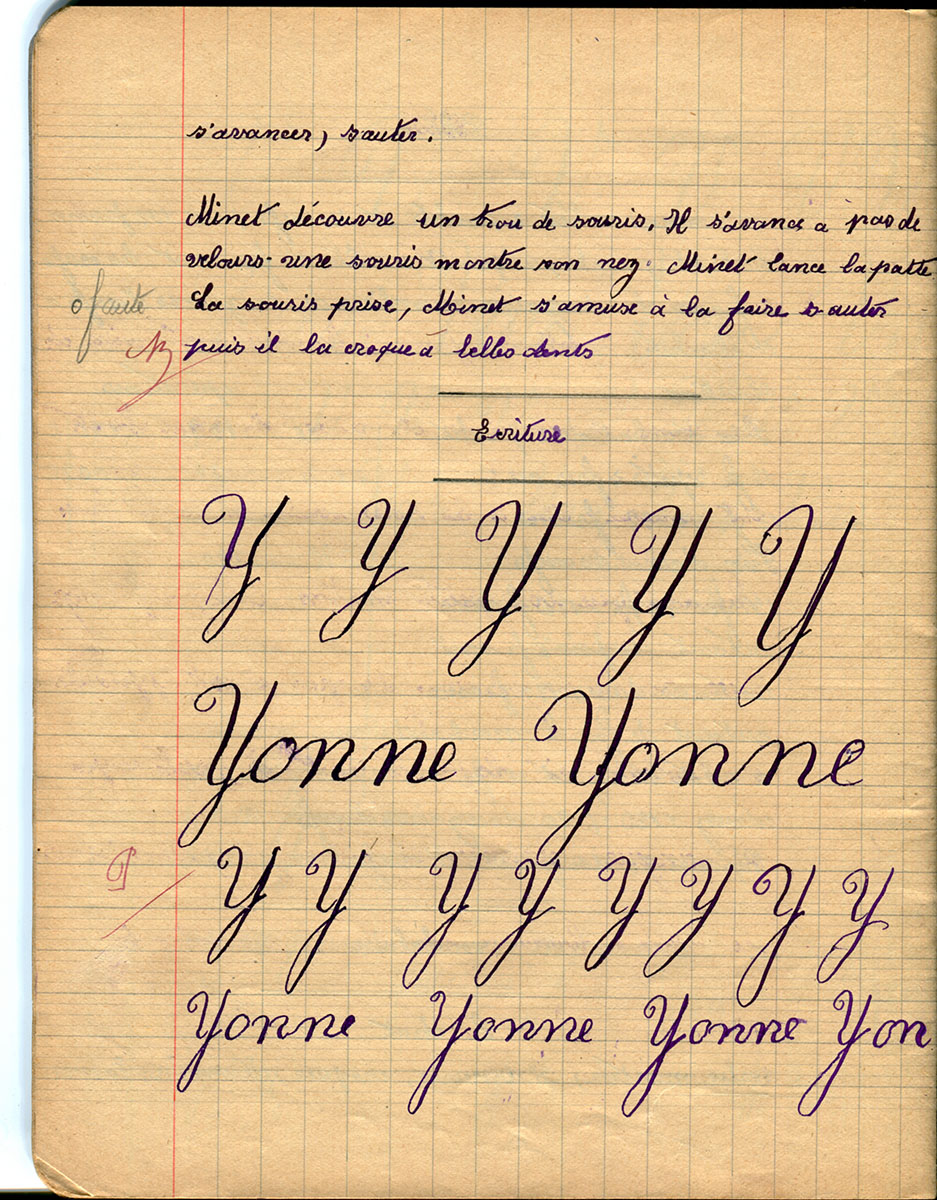 s'avancer, sauter.
Minet découvre un trou de souris. Il s'avance a pas de
velours. une souris montre son nez. Minet lance la patte
0 faute
La souris prise, Minet s'amuse à la faire sauter
puis il la croque à belles dents
Ecriture
Y Y Y Y Y
Yonne Yonne
Y Y Y Y Y Y Y Y
Yonne Yonne Yonne Yon